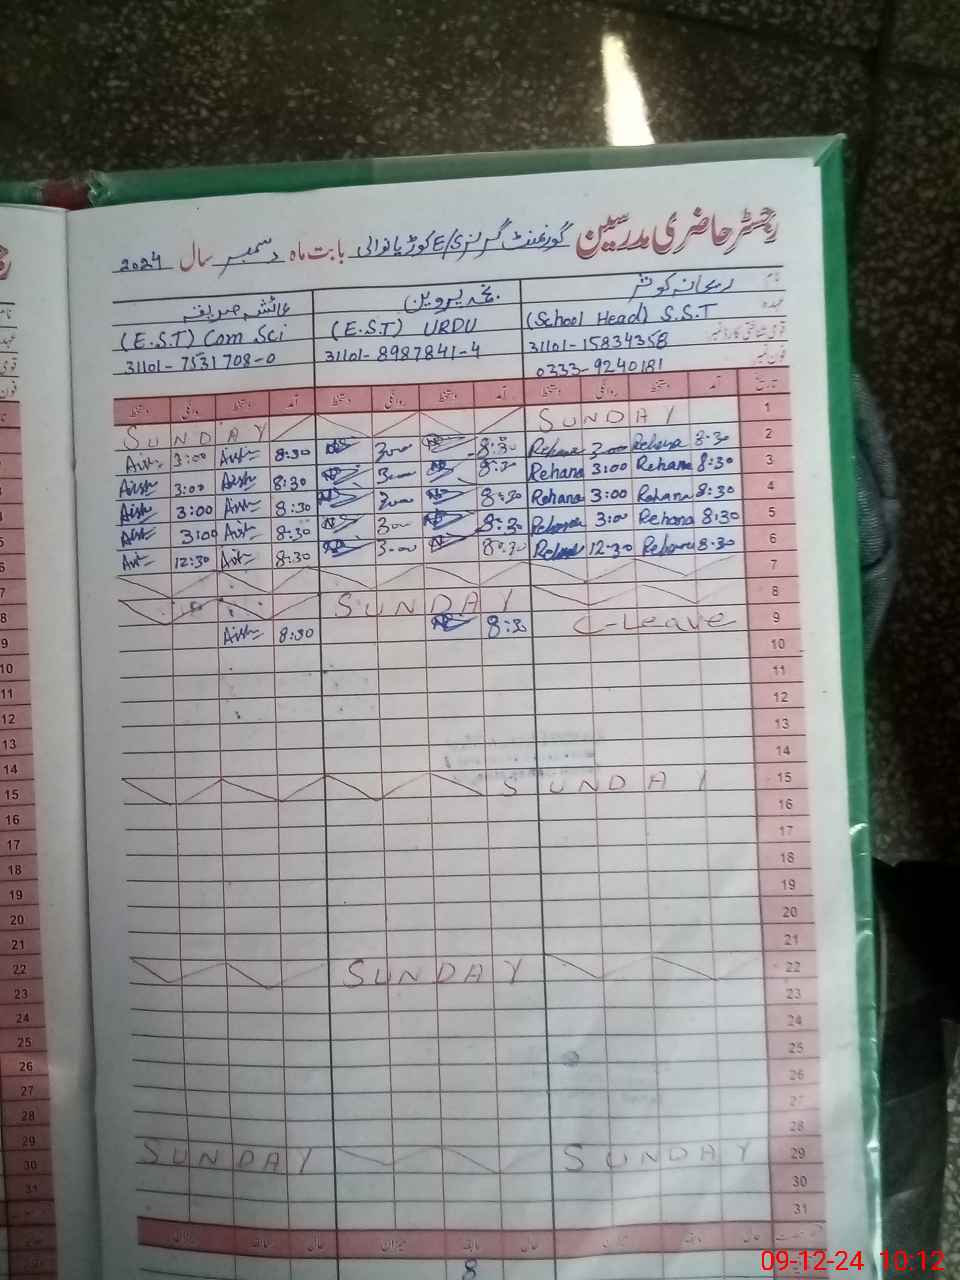 رجسٹر حاضری مدرسین گورنمنٹ گرلز E/S کوڑیانوالی بابت ماہ دسمبر سال 2024
نام ریحانہ کوثر نجمہ پروین عائشہ صدیقہ
عہدہ (School Head) S.S.T (E.S.T) URDU (E.S.T) Com Sci
قومی شناختی کارڈ نمبر 31101-15834358 31101-8987841-4 31101-7531708-0
فون نمبر 0333-9240181
تاریخ آمد دستخط روانگی دستخط آمد دستخط روانگی دستخط آمد دستخط روانگی دستخط
1 SUNDAY SUNDAY
2 8:30 Rehana 3:00 Rehana 8:30 3:00 8:30 Aish 3:00 Aish
3 8:30 Rehana 3:00 Rehana 8:30 3:00 8:30 Aish 3:00 Aish
4 8:30 Rehana 3:00 Rehana 8:30 3:00 8:30 Aish 3:00 Aish
5 8:30 Rehana 3:00 Rehana 8:30 3:00 8:30 Aish 3:00 Aish
6 8:30 Rehana 12:30 Rehana 8:30 3:00 8:30 Aish 12:30 Aish
7
8 SUNDAY
9 C-Leave 8:30 8:30 Aish
10
11
12
13
14
15 SUNDAY
16
17
18
19
20
21
22 SUNDAY
23
24
25
26
27
28
29 SUNDAY SUNDAY
30
31
میزان سابقہ حالیہ
8
7
8
9
10
11
12
13
14
15
16
17
18
19
20
21
22
23
24
25
26
27
28
29
30
31
09-12-24 10:12